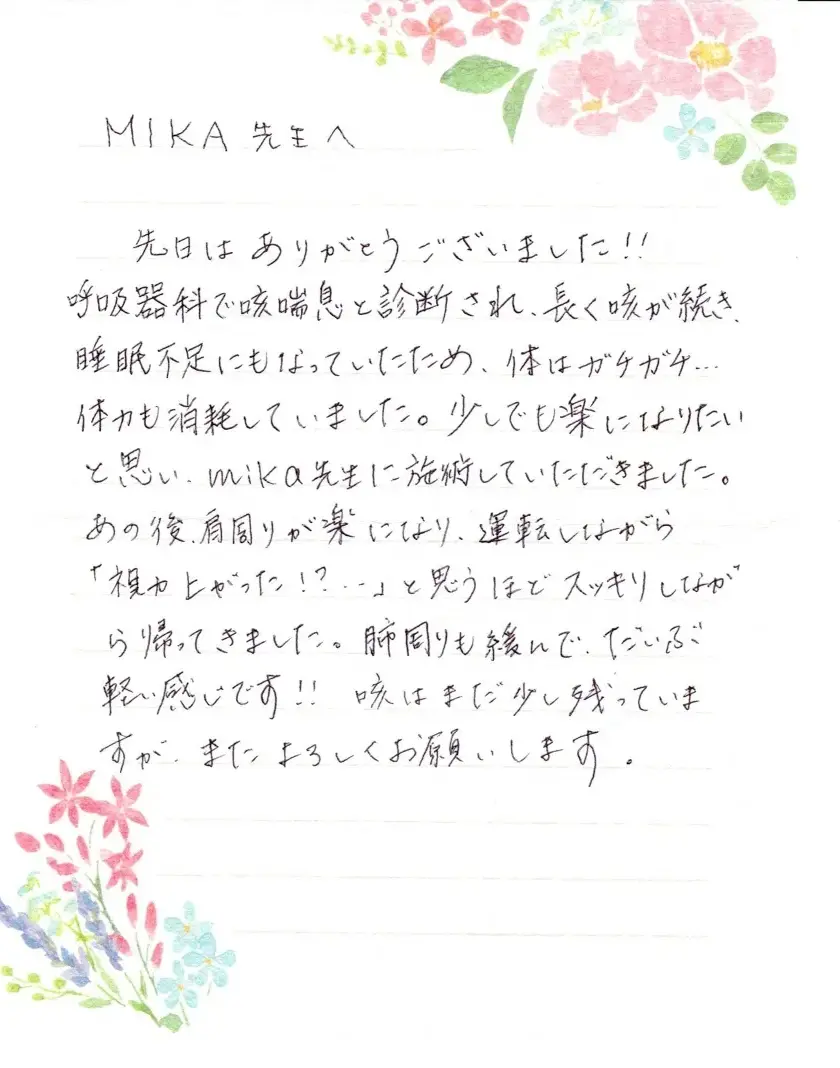 MIKA 先生へ
先日は ありがとうございました!!
呼吸器科で咳喘息と診断され、長く咳が続き、
睡眠不足にもなっていたため、体はガチガチ…
体力も消耗していました。少しでも楽になりたい
と思い、mika先生に施術していただきました。
あの後、肩周りが楽になり、運転しながら
「視力上がった!?…」と思うほどスッキリしなが
ら帰ってきました。肺周りも緩んで、だいぶ
軽い感じです!! 咳はまだ少し残っていま
すが、またよろしくお願いします。